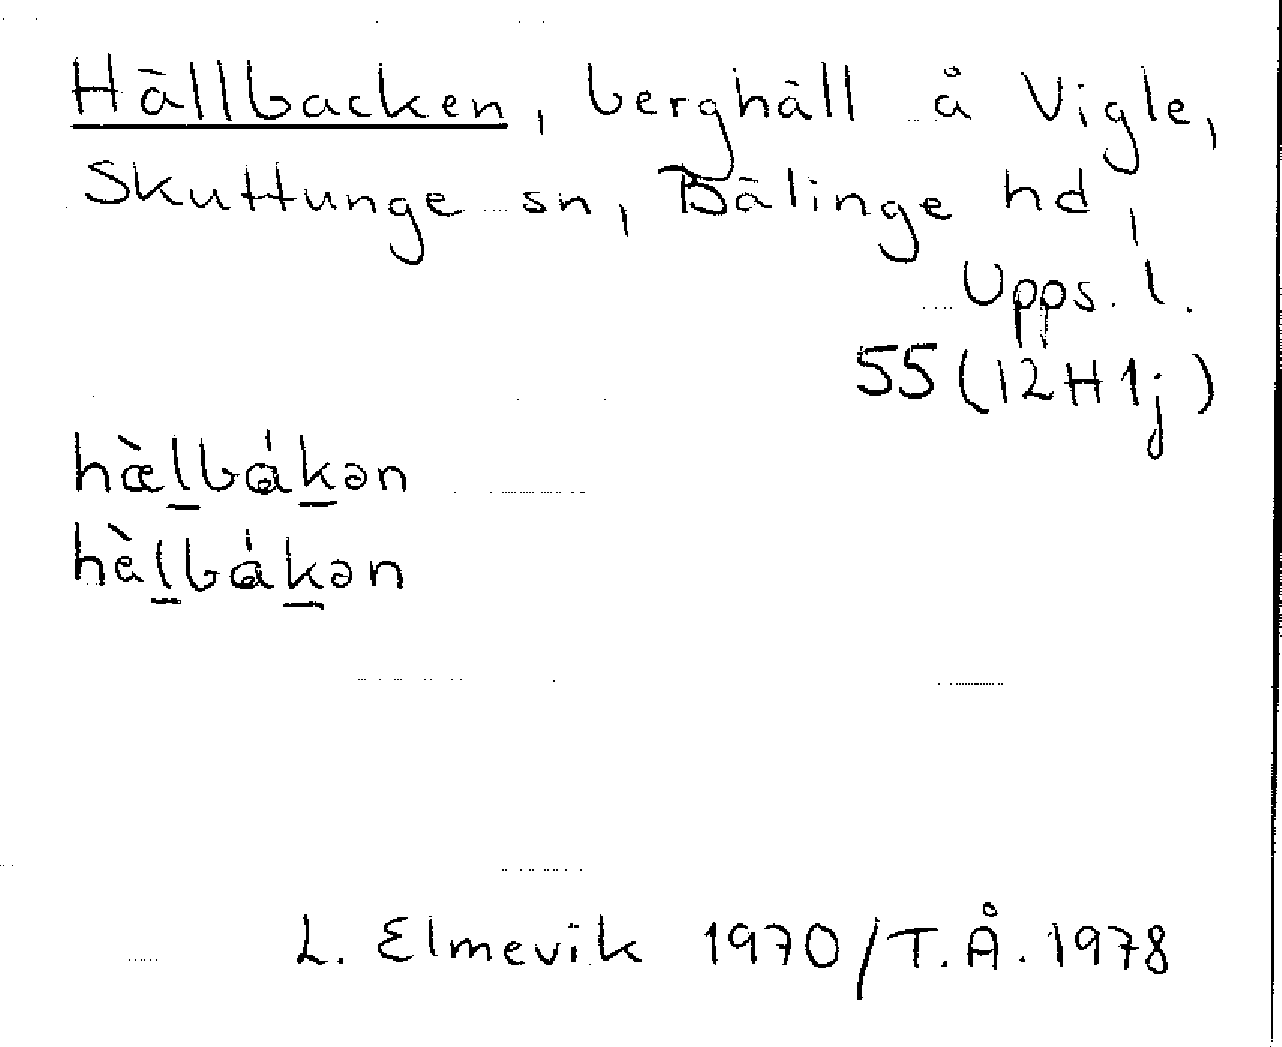 Hällbacken, berghäll å Vigle,
Skuttunge sn, Bälinge hd,
Upps. l.
55 (12H1j)
hæ̀l̲bák̲ən
hèl̲bák̲ən
L. Elmevik 1970/T.Å. 1978